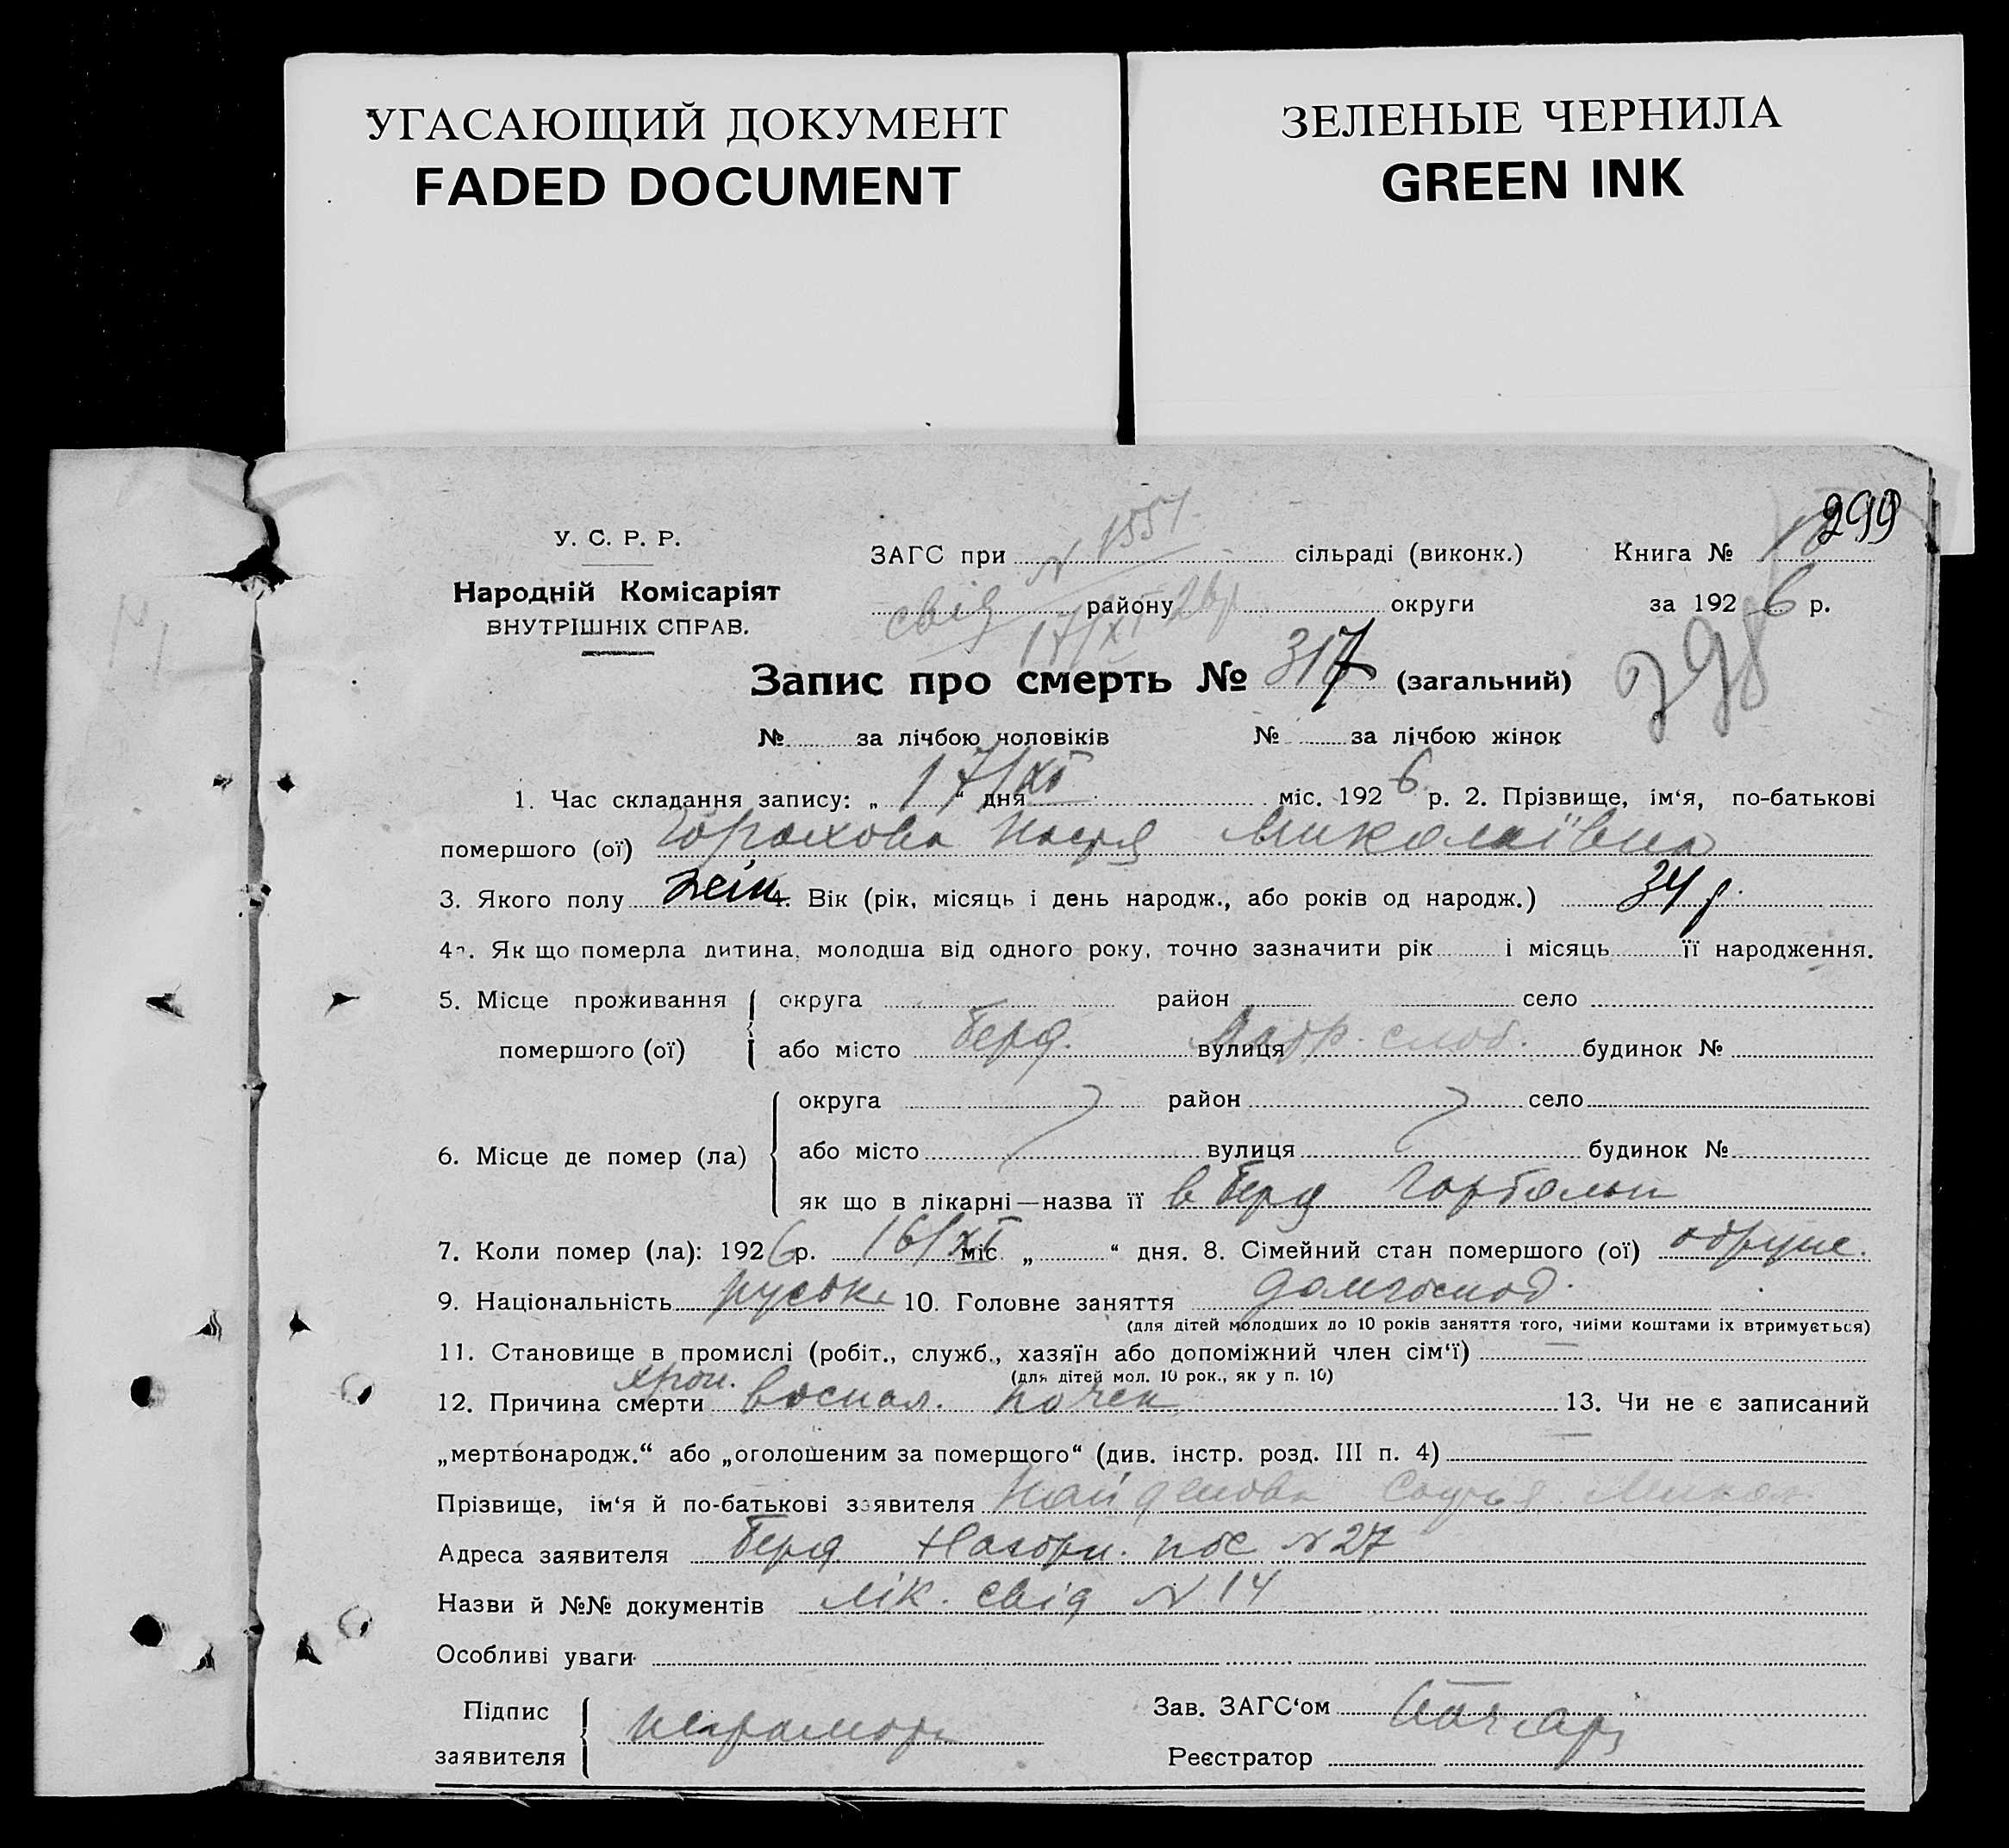 УГАСАЮЩИЙ ДОКУМЕНТ
FADED DOCUMENT
ЗЕЛЕНЫЕ ЧЕРНИЛА
GREEN INK
299
У. С. Р. Р.
Народній Комісаріят
ВНУТРІШНІХ СПРАВ.
ЗАГС при N 1551 сільраді (виконк.) Книга №
свід району 17/XI 26р округи за 1926 р.
298
Запис про смерть № 317 (загальний)
№ за лічбою чоловіків № за лічбою жінок
1. Час складання запису: „ 17/XI “ дня міс. 1926 р. 2. Прізвище, ім‘я, по-батькові
помершого (ої) Горохова Настя Миколаївна
3. Якого полу жін 4. Вік (рік, місяць і день народж., або років од народж.) 34 р.
4а. Як що померла дитина, молодша від одного року, точно зазначити рік і місяць її народження.
5. Місце проживання округа район село
помершого (ої) або місто Берд. вулиця слоб. будинок №
округа район село
6. Місце де помер (ла) або місто вулиця будинок №
як що в лікарні—назва її в Берд
7. Коли помер (ла): 1926 р. 16/XI міс „ “ дня. 8. Сімейний стан помершого (ої) одруж.
9. Національність руська 10. Головне заняття домгоспод.
(для дітей молодших до 10 років заняття того, чиїми коштами їх втримується)
11. Становище в промислі (робіт., служб., хазяїн або допоміжний член сім‘ї) —
(для дітей мол. 10 рок., як у п. 10)
12. Причина смерти хрон. воспал. почек 13. Чи не є записаний
„мертвонародж.“ або „оголошеним за померщого“ (див. інстр. розд. III п. 4) —
Прізвище, ім‘я й по-батькові заявителя Найденова
Адреса заявителя Берд Нагорн. N 27
Назви й №№ документів лік. свід N 14
Особливі уваги
Підпис Зав. ЗАГС‘ом
заявителя неграмотн Реєстратор